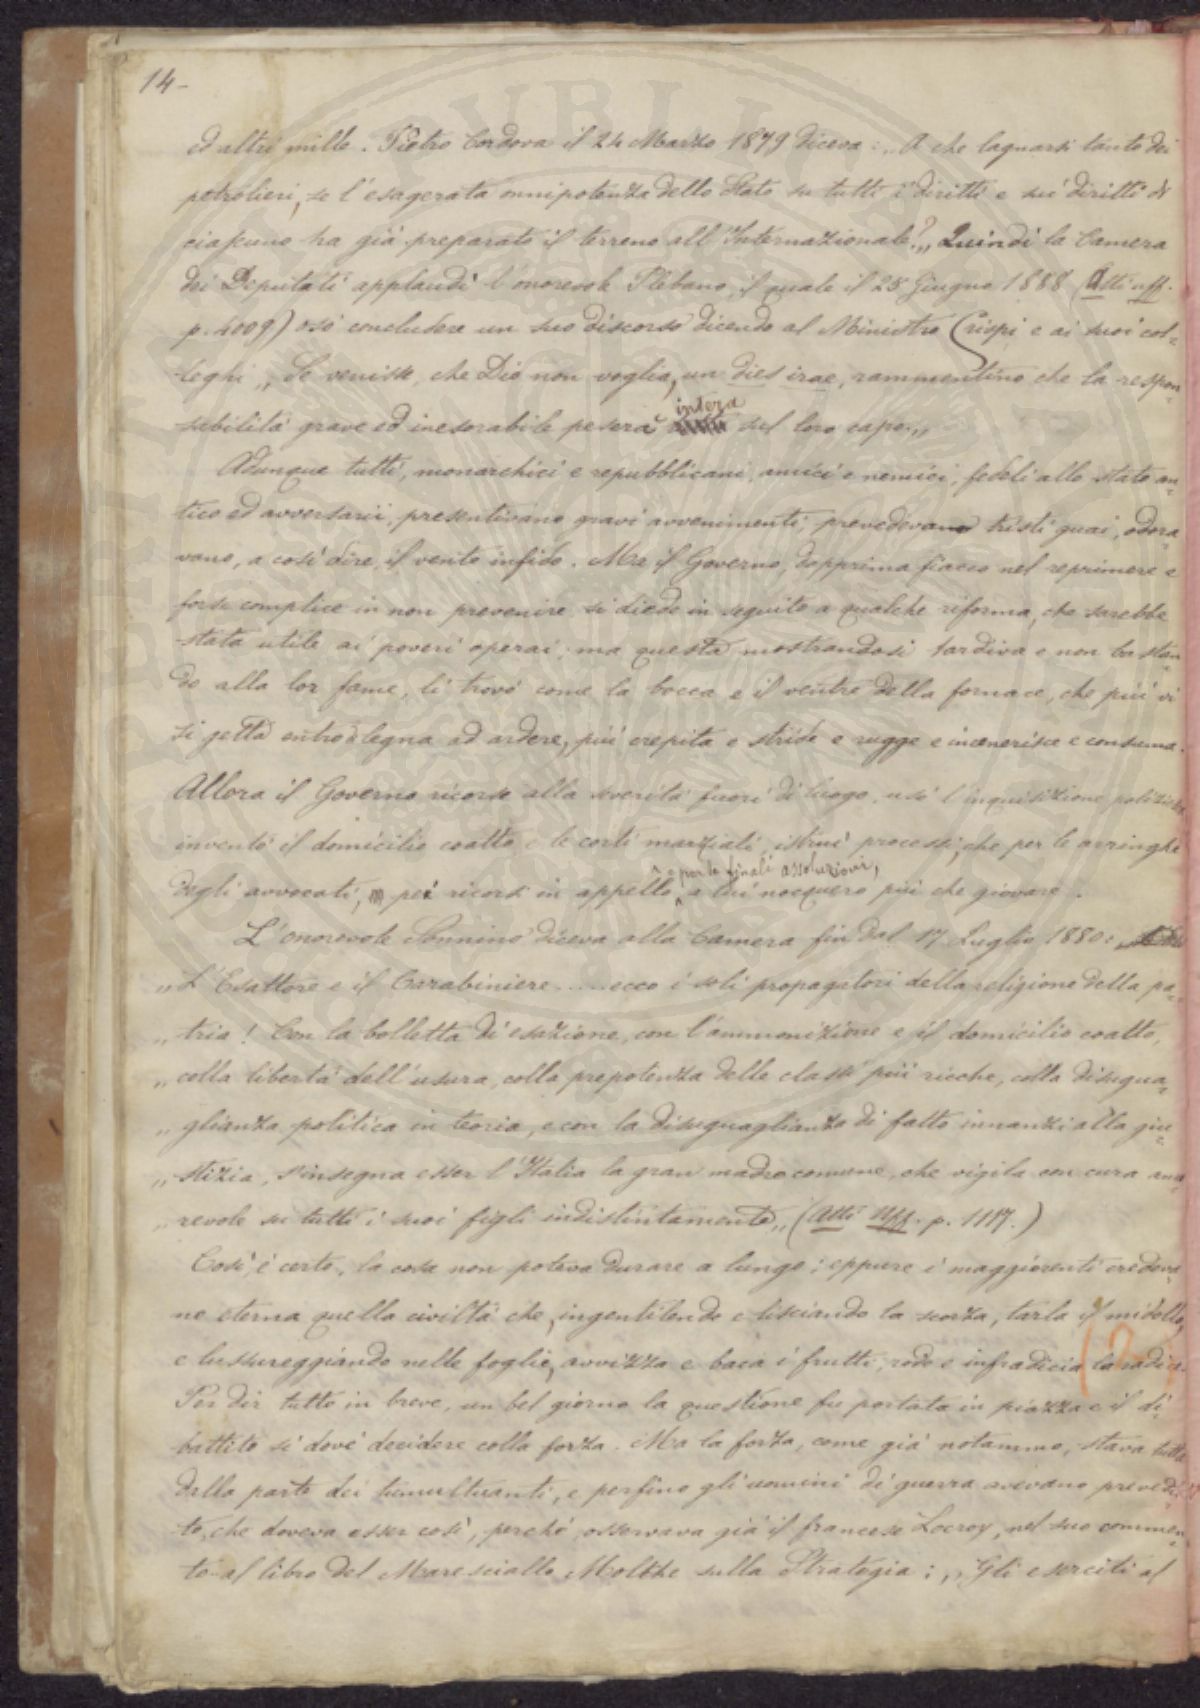 14-
ed altri mille. Pietro Cordova il 24 Marzo 1879 diceva: „A che lagnarsi tanto dei
petrolieri, se l'esagerata onnipotenza dello Stato su tutti i diritti e sui diritti di
ciascuno ha già preparato il terreno all'Internazionale?„ Quindi la Camera
dei Deputati applaudì l'onorevole Plebano, il quale il 25 Giugno 1888 (Atti uff.
p. 4009) osò concludere un suo discorso dicendo al Ministro Crispi e ai suoi col-
leghi „Se venisse, che Dio non voglia, un dies irae, rammentino che la respon-
sabilità grave ed inesorabile peserà intera sul loro capo.„
Adunque tutti, monarchici e repubblicani, amici e nemici, fedeli allo stato an-
tico ed avversarii, presentivano gravi avvenimenti, prevedevano tristi guai, odora-
vano, a così dire, il vento infido. Ma il Governo, dapprima fiacco nel reprimere e
forse complice in non prevenire si diede in seguito a qualche riforma, che sarebbe
stata utile ai poveri operai; ma questa mostrandosi tardiva e non bastan-
do alla lor fame, li trovò come la bocca e il ventre della fornace, che più vi
si getta entro legna ad ardere, più crepita e stride e rugge e incenerisce e consuma.
Allora il Governo ricorse alla severità fuori di luogo, usò l'inquisizione poliziesca
inventò il domicilio coatto e le corti marziali, istruì processi, che per le arringhe
degli avvocati, pei ricorsi in appello, e per le finali assoluzioni, a lui nocquero più che giovare.
L'onorevole Sonnino diceva alla Camera fin dal 17 Luglio 1880:
„L'Esattore e il Carabiniere.....ecco i soli propagatori della religione della pa-
„tria! Con la bolletta di esazione, con l'ammonizione e il domicilio coatto,
„colla libertà dell'usura, colla prepotenza delle classi più ricche, colla disegua-
„glianza politica in teoria, e con la diseguaglianza di fatto innanzi alla giu-
„stizia, s'insegna esser l'Italia la gran madre comune, che vigila con cura amo-
„revole su tutti i suoi figli indistintamente„ (Atti Uff. p. 1117.)
Così, è certo, la cosa non poteva durare a lungo; eppure i maggiorenti credeva-
no eterna quella civiltà che, ingentilendo e lisciando la scorza, tarla il midollo,
e lussureggiando nelle foglie, avvizza e baca i frutti, rode e infradicia la radice.
Per dir tutto in breve, un bel giorno la questione fu portata in piazza e il di-
battito si dové decidere colla forza. Ma la forza, come già notammo, stava tutta
dalla parte dei tumultuanti, e perfino gli uomini di guerra avevano preveduto
to, che doveva esser così, perché, osservava già il francese Locroy, nel suo commen-
to al libro del Maresciallo Moltke sulla Strategia: „Gli eserciti al